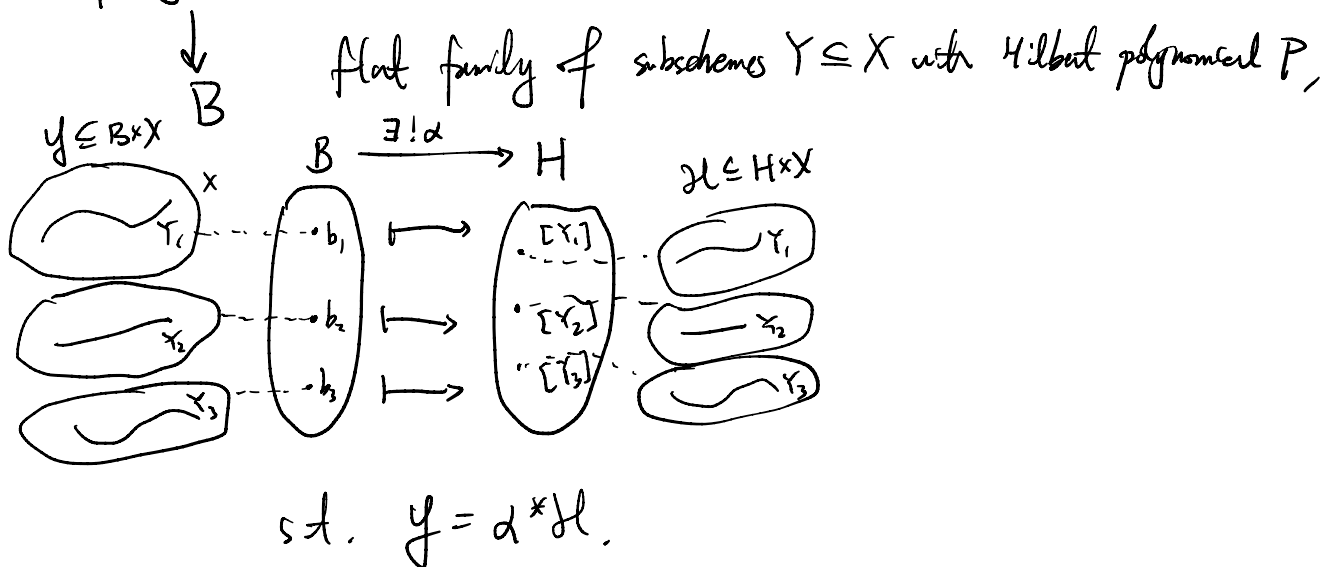 ↓
B
flat family of subschemes Y ⊆ X with Hilbert polynomial P,
𝒴 ⊆ B×X
B ∃!α → H
ℋ ⊆ H×X
X
Y₁ b₁ ↦ [Y₁] Y₁
Y₂ b₂ ↦ [Y₂] Y₂
Y₃ b₃ ↦ [Y₃] Y₃
s.t. 𝒴 = α*ℋ.